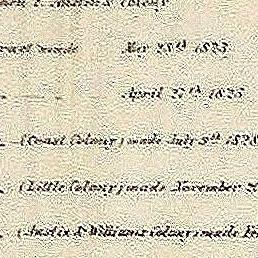 Austin's Colony
made May 28th 1825
April 27th 1825
(Coast Colony) made July 9th 1828
(Little Colony) made November 20
(Austin & Williams Colony) made